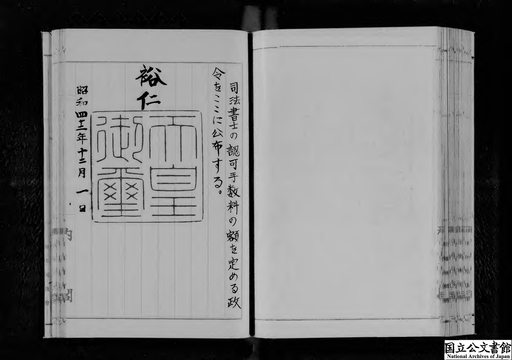 司法書士の認可手数料の額を定める政
令をここに公布する。
裕仁
天皇
御璽
昭和四十三年十二月一日
内
閣
国立公文書館
National Archives of Japan